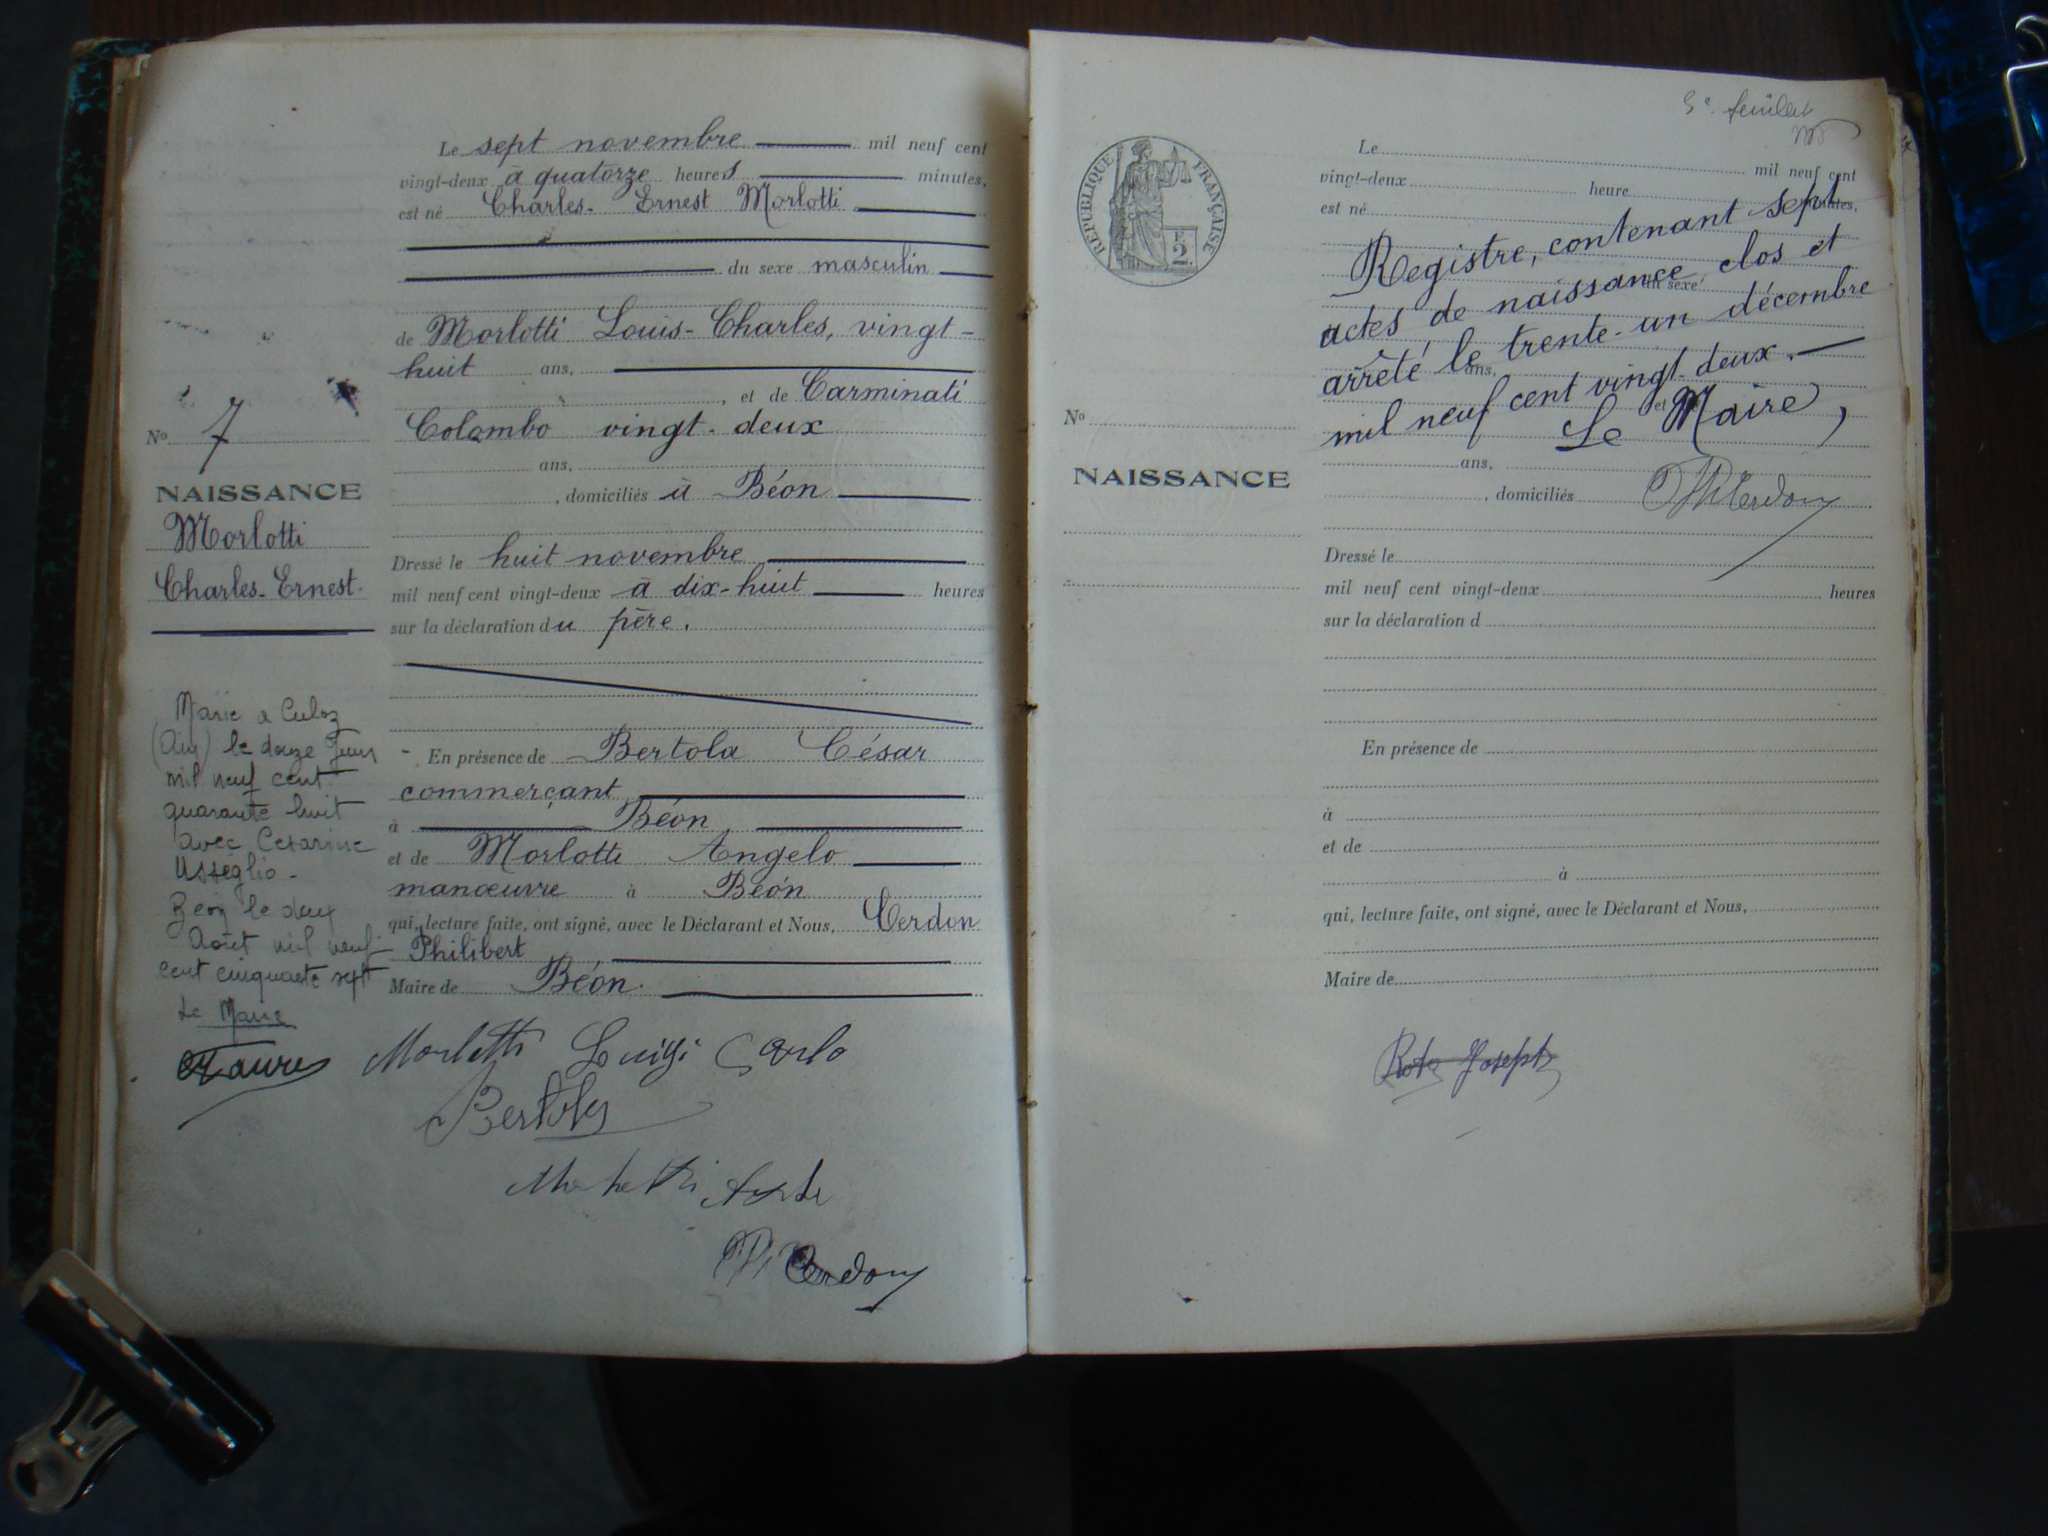 Le sept novembre mil neuf cent
vingt-deux à quatorze heures minutes,
est né Charles-Ernest Morlotti
du sexe masculin
de Morlotti Louis-Charles, vingt-
huit ans,
, et de Carminati
Colombo vingt-deux
ans,
, domiciliés à Béon
Dressé le huit novembre
mil neuf cent vingt-deux à dix-huit heures
sur la déclaration du père.
En présence de Bertola César
commerçant
à Béon
et de Morlotti Angelo
manœuvre à Béon
qui, lecture faite, ont signé, avec le Déclarant et Nous, Cerdon
Philibert
Maire de Béon.
Morlotti Luigi Carlo
Bertola
Cerdon
No 7
NAISSANCE
Morlotti
Charles-Ernest.
Marié a Culoz
(Ain) le douze Juin
mil neuf cent
quarante huit
avec Cesarine
Usseglio -
Béon le deux
Août mil neuf
cent cinquante sept
Le Maire
3e feuillet
RÉPUBLIQUE FRANÇAISE
F 2
Le mil neuf cent
vingt-deux heure minutes,
est né
du sexe
ans,
et de
Registre, contenant sept
actes de naissance, clos et
arrêté le trente-un décembre
mil neuf cent vingt-deux.
Le Maire,
Ph Cerdon
No
NAISSANCE
ans,
, domiciliés
Dressé le
mil neuf cent vingt-deux heures
sur la déclaration d
En présence de
à
et de
à
qui, lecture faite, ont signé, avec le Déclarant et Nous,
Maire de
Joseph